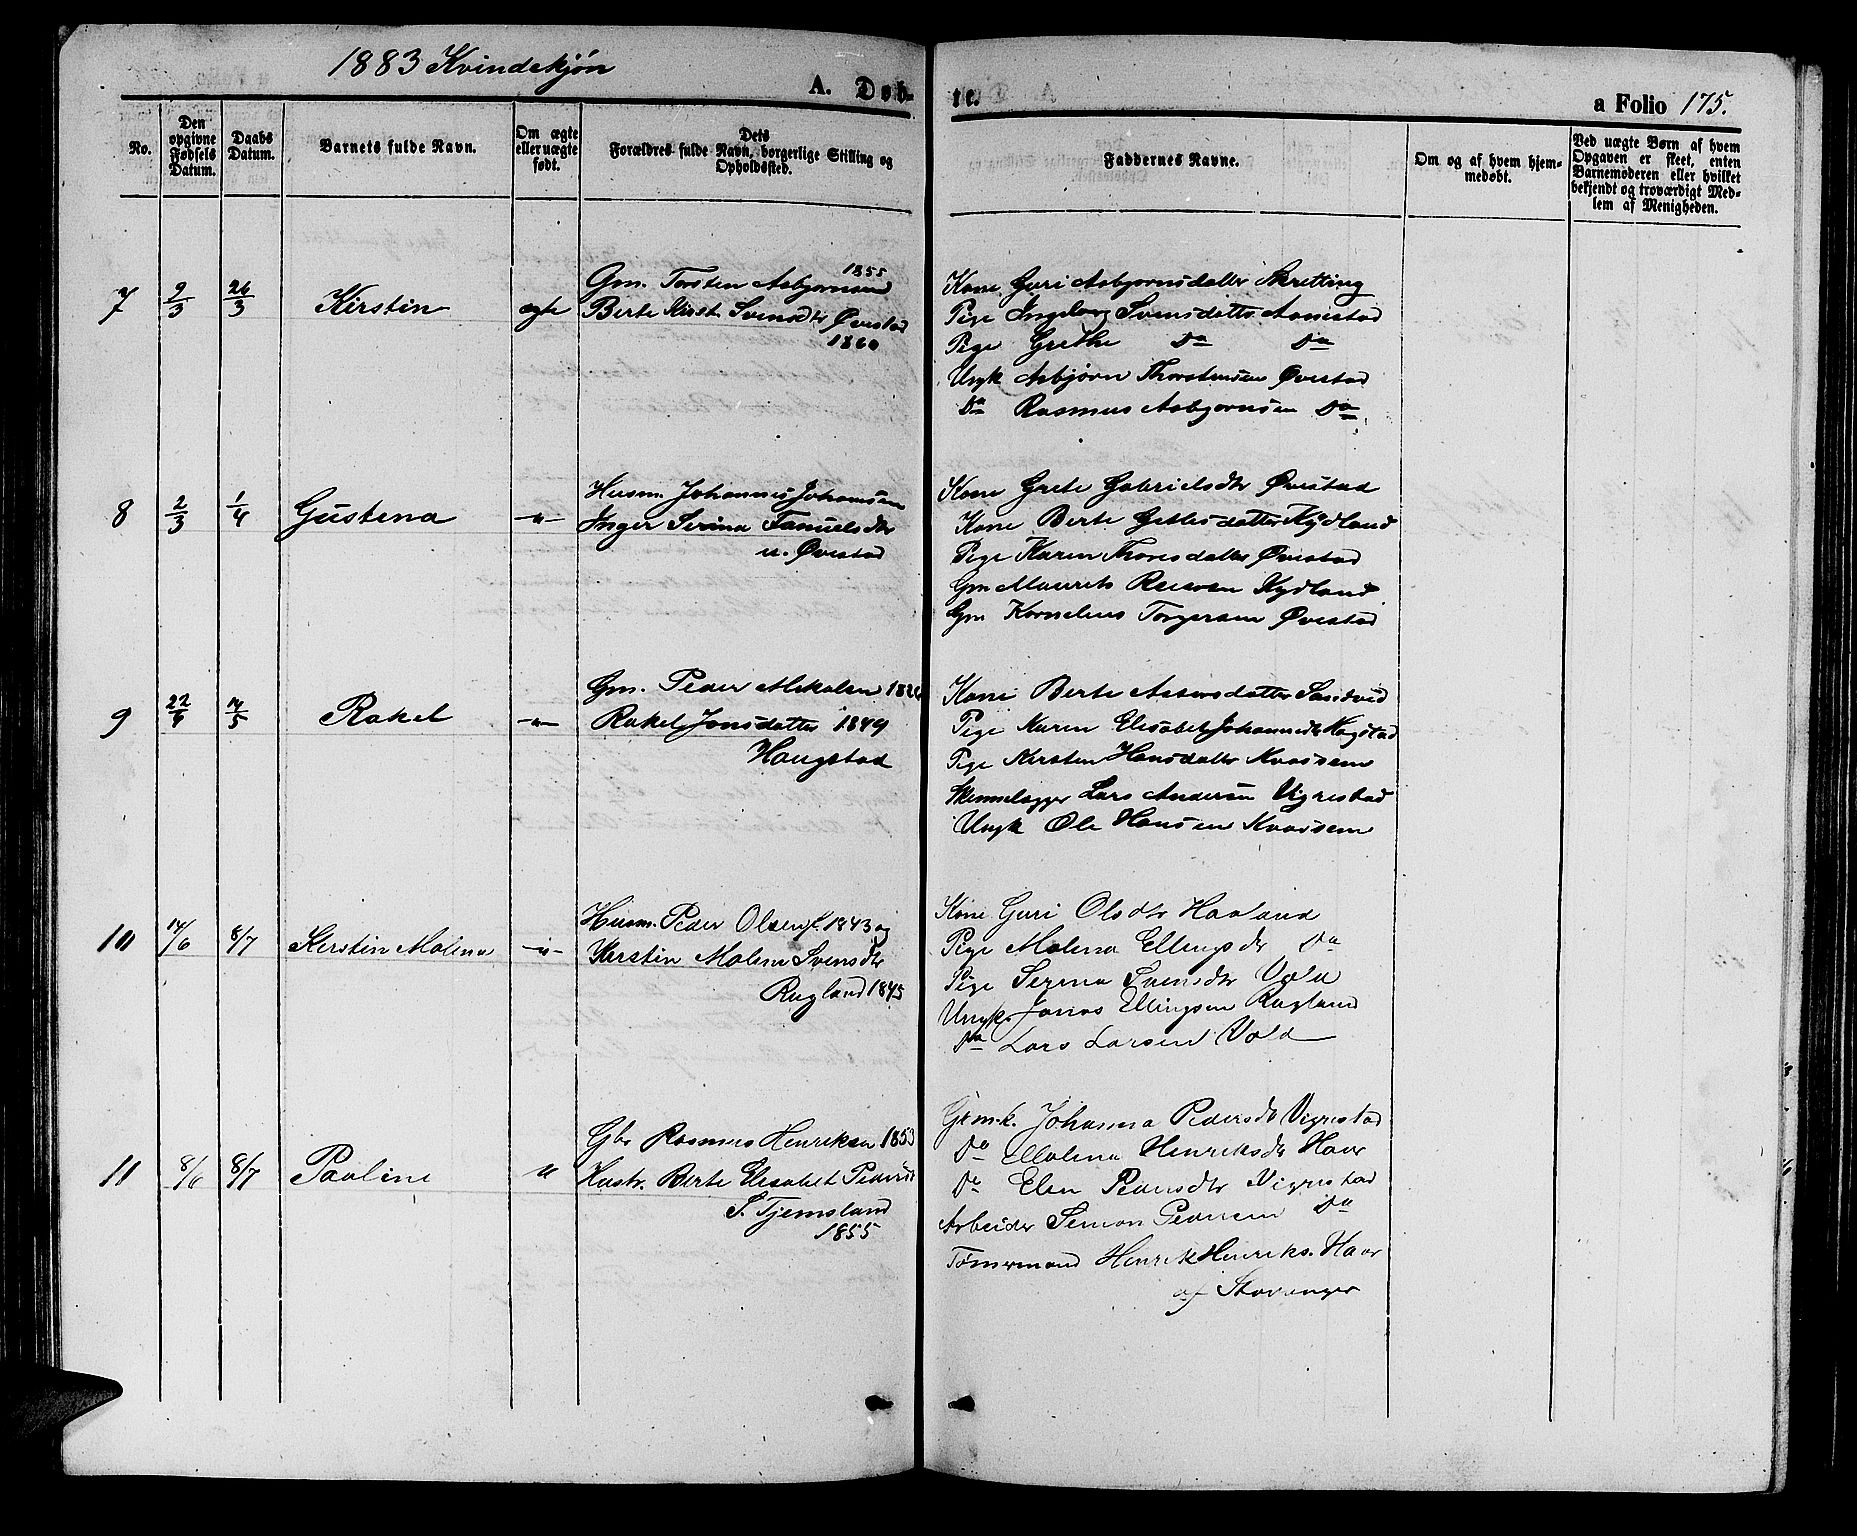 1883 Kvindekjøn
A. Døb-
te.
a Folio 175.
No.
Den opgivne Fødsels Datum.
Daabs Datum.
Barnets fulde Navn.
Om ægte eller uægte født.
Dets Forældres fulde Navn, borgerlige Stilling og Opholdssted.
Faddernes Navne.
Om og af hvem hjemmedøbt.
Ved uægte Børn af hvem Opgaven er skeet, enten Barnemoderen eller hvilket bekjendt og troværdigt Medlem af Menigheden.
7 2/3 26/3 Kirstin ægte
Gm. Torsten Asbjornsen 1855
Berte Kirst. Svensdtr Øvestad
1860
Kone Guri Asbjornsdatter Skretting
Pige Ingeborg Svensdatter Aanestad
Pige Grethe Do Do
Ungk Asbjørn Thorstensen Øvestad
Do Rasmus Asbjornsen Do
8 2/3 1/4 Gustena -"-
Husm. Johannes Johansen
Inger Serina Tanuelsdtr
u. Øvestad
Kone Grete Gabrielsdtr Øvestad
Kone Berte Getlesdatter Kydland
Pige Karen Thoresdatter Øvestad
Gm Maurits Kydland
Gm Kornelius Torgersen Øvestad
9 22/4 14/5 Rakel -"-
Gm. Peder Mikalsen
Rakel Jonsdatter 1849
Haugstad
Kone Berte Assersdatter Sandvid
Pige Karen Elisabet Johannesdtr Hogstad
Pige Kersten Hansdatter Kvassem
Lars Andersen Vigrestad
Ungk Ole Hansen Kvassem
10 14/6 8/7 Kerstin Malina -"-
Husm. Peder Olsen f. 1843 og
Kerstin Malene Svensdtr
Rugland 1845
Kone Guri Olsdtr Haaland
Pige Malena Ellingsdtr Do
Pige Serina Svensdtr Vold
Ungk. Jonas Ellingsen Rugland
Do Lars Larsen Vold
11 8/6 8/7 Pauline "
Gbr Rasmus Henriksen 1853
Hustr. Berte Elisabet Pedersdt
S. Tjemsland
1855
Johanna Pedersdtr Vigrestad
Do Malena Henriksdtr Haar
Do Elen Pedersdtr Vigrestad
Arbeider Simon Pedersen Do
Tømermand Henrik Henriks. Haar
af Stavanger